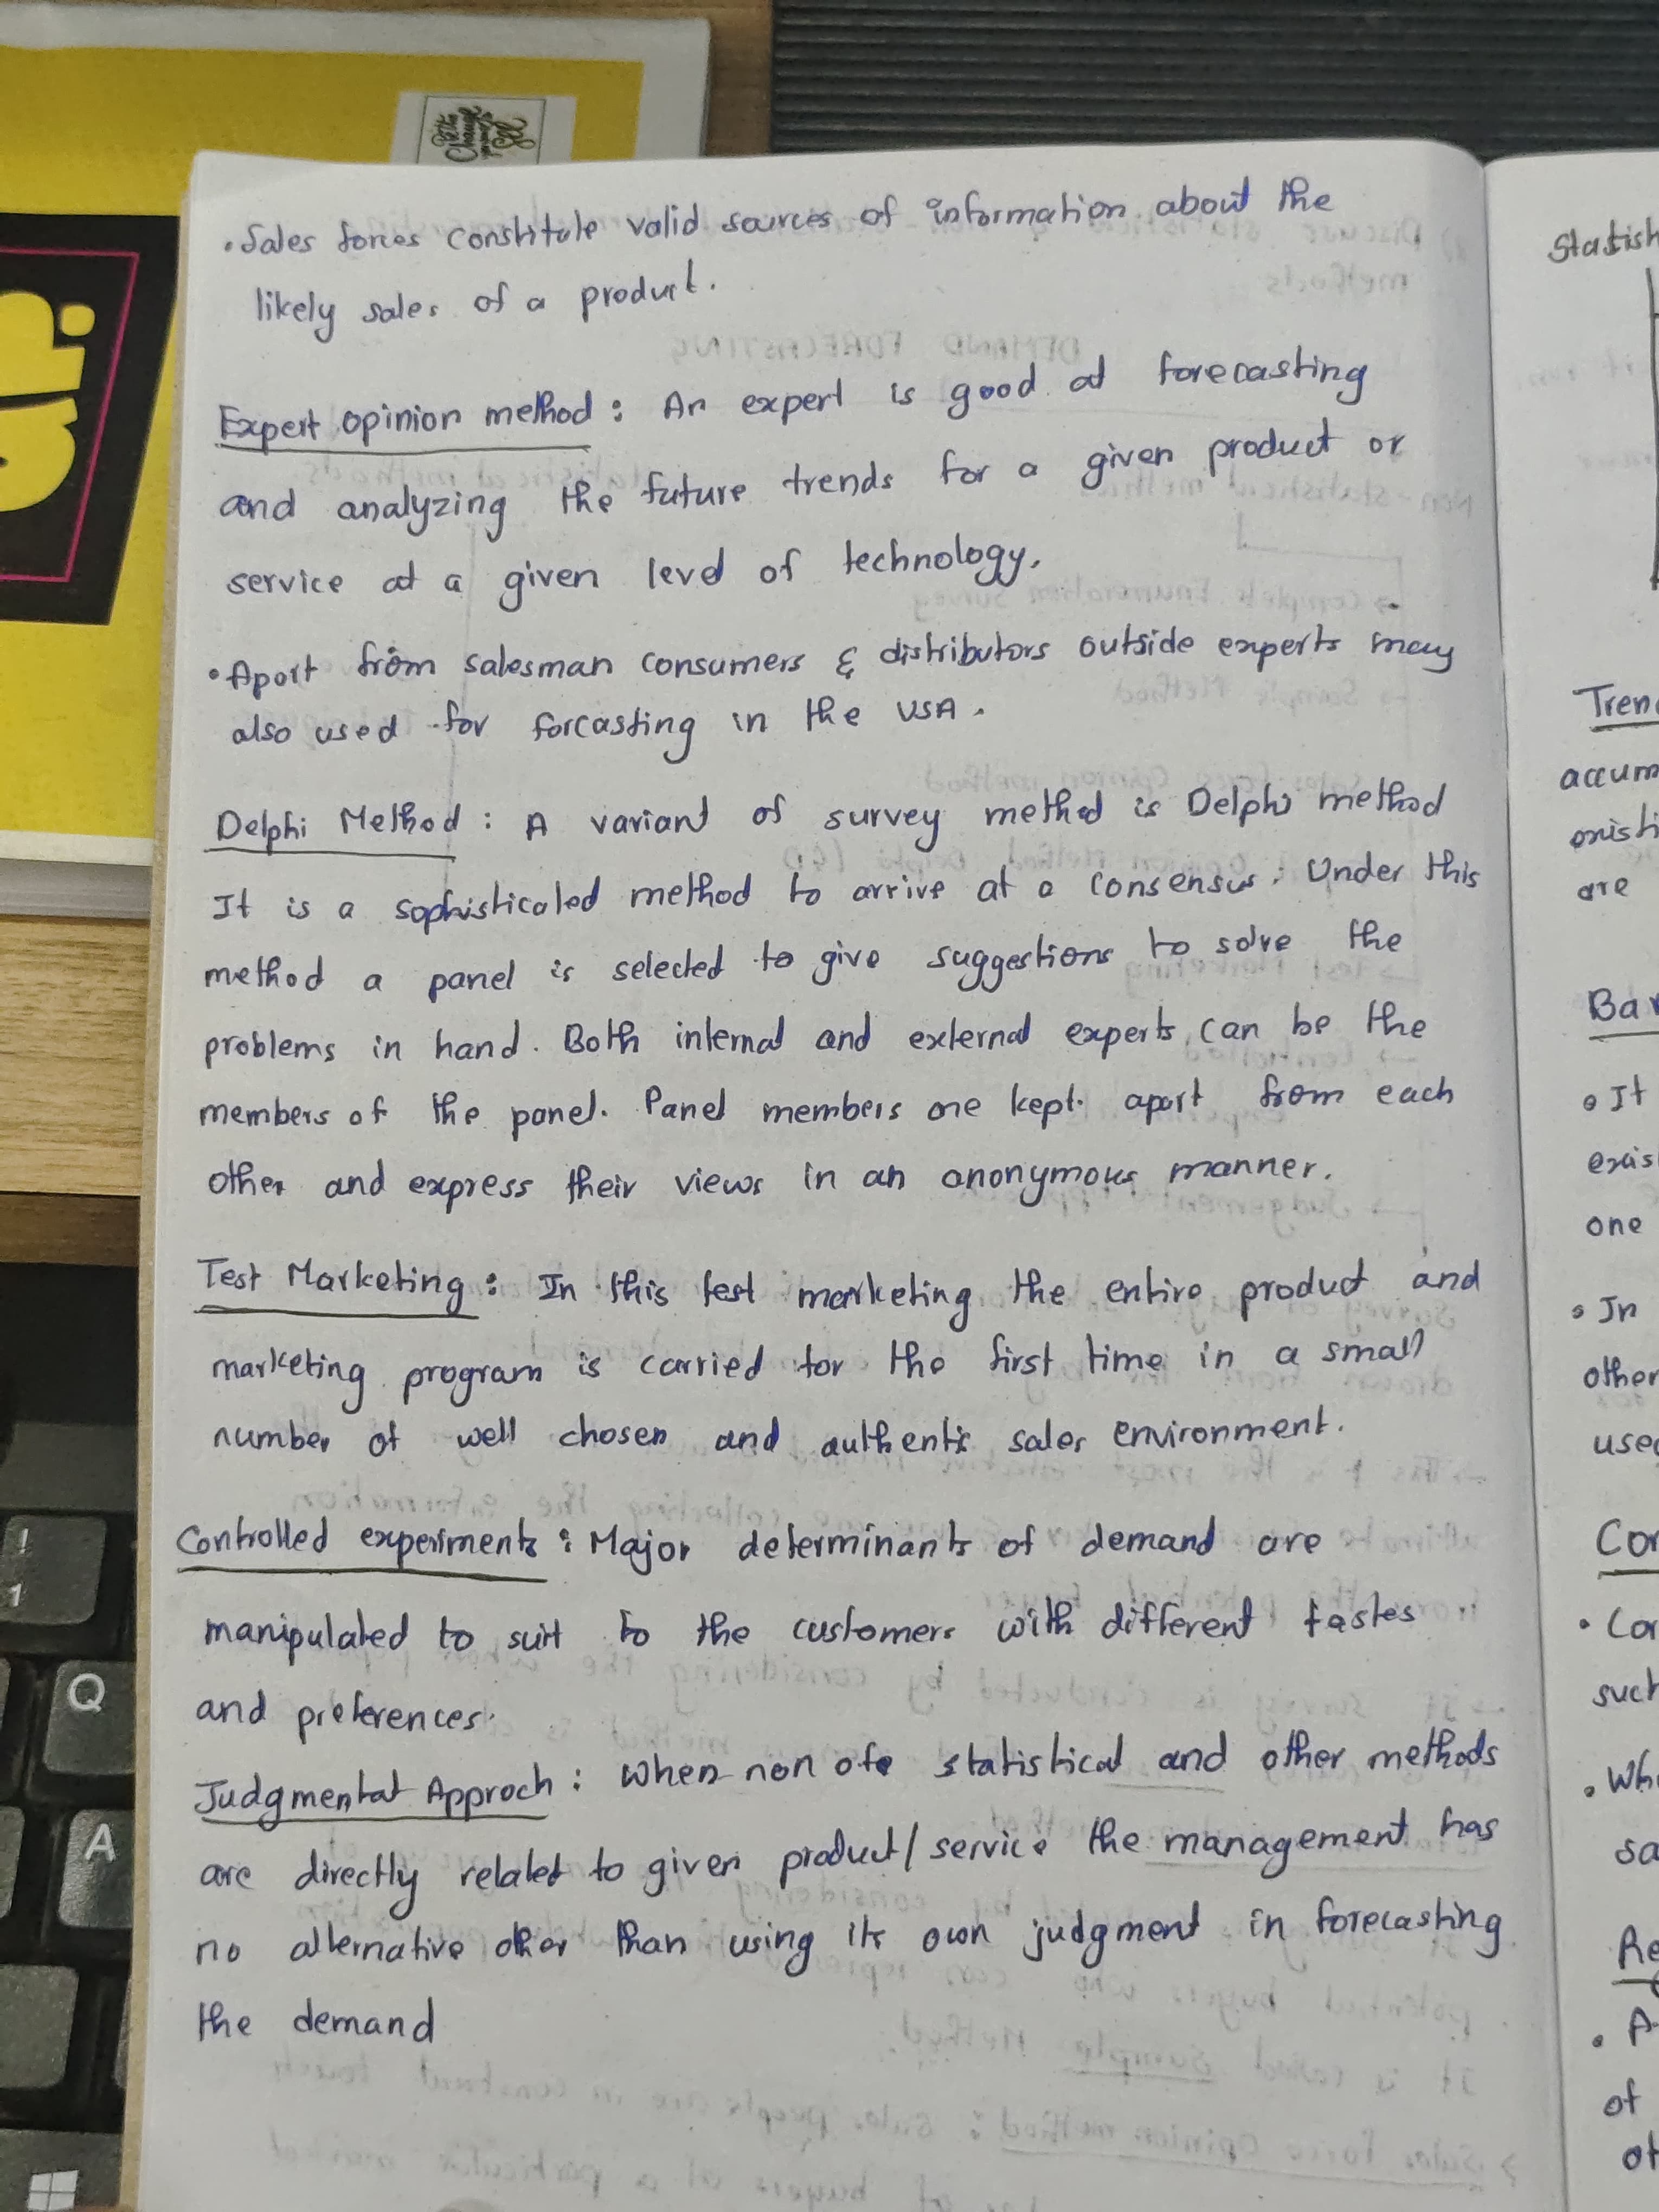 Be the
Change
you want to
See
• Sales forces constitute valid sources of information about the
likely sales of a product.
Expert opinion method : An expert is good at forecasting
and analyzing the future trends for a given product or
service at a given level of technology.
• Apart from salesman consumers & distributors outside experts may
also used for forcasting in the USA.
Delphi Method : A variant of survey method is Delphi method
It is a sophisticated method to arrive at a consensus. Under this
method a panel is selected to give suggestions to solve the
problems in hand. Both internal and external experts can be the
members of the panel. Panel members are kept apart from each
other and express their views in an anonymous manner.
Test Marketing : In this test marketing the entire product and
marketing program is carried for the first time in a small
number of well chosen and authentic sales environment.
Controlled experiments : Major determinants of demand are
manipulated to suit to the customers with different tastes
and preferences.
Judgmental Approch : When non of statistical and other methods
are directly related to given product/service the management has
no alternative other than using its own judgment in forecasting
the demand
Statist
Tren
accum
existi
are
Bar
• It
exis
one
• In
other
used
Con
• Con
such
• Whe
sa
Re
• A
of
ot
!
1
Q
A